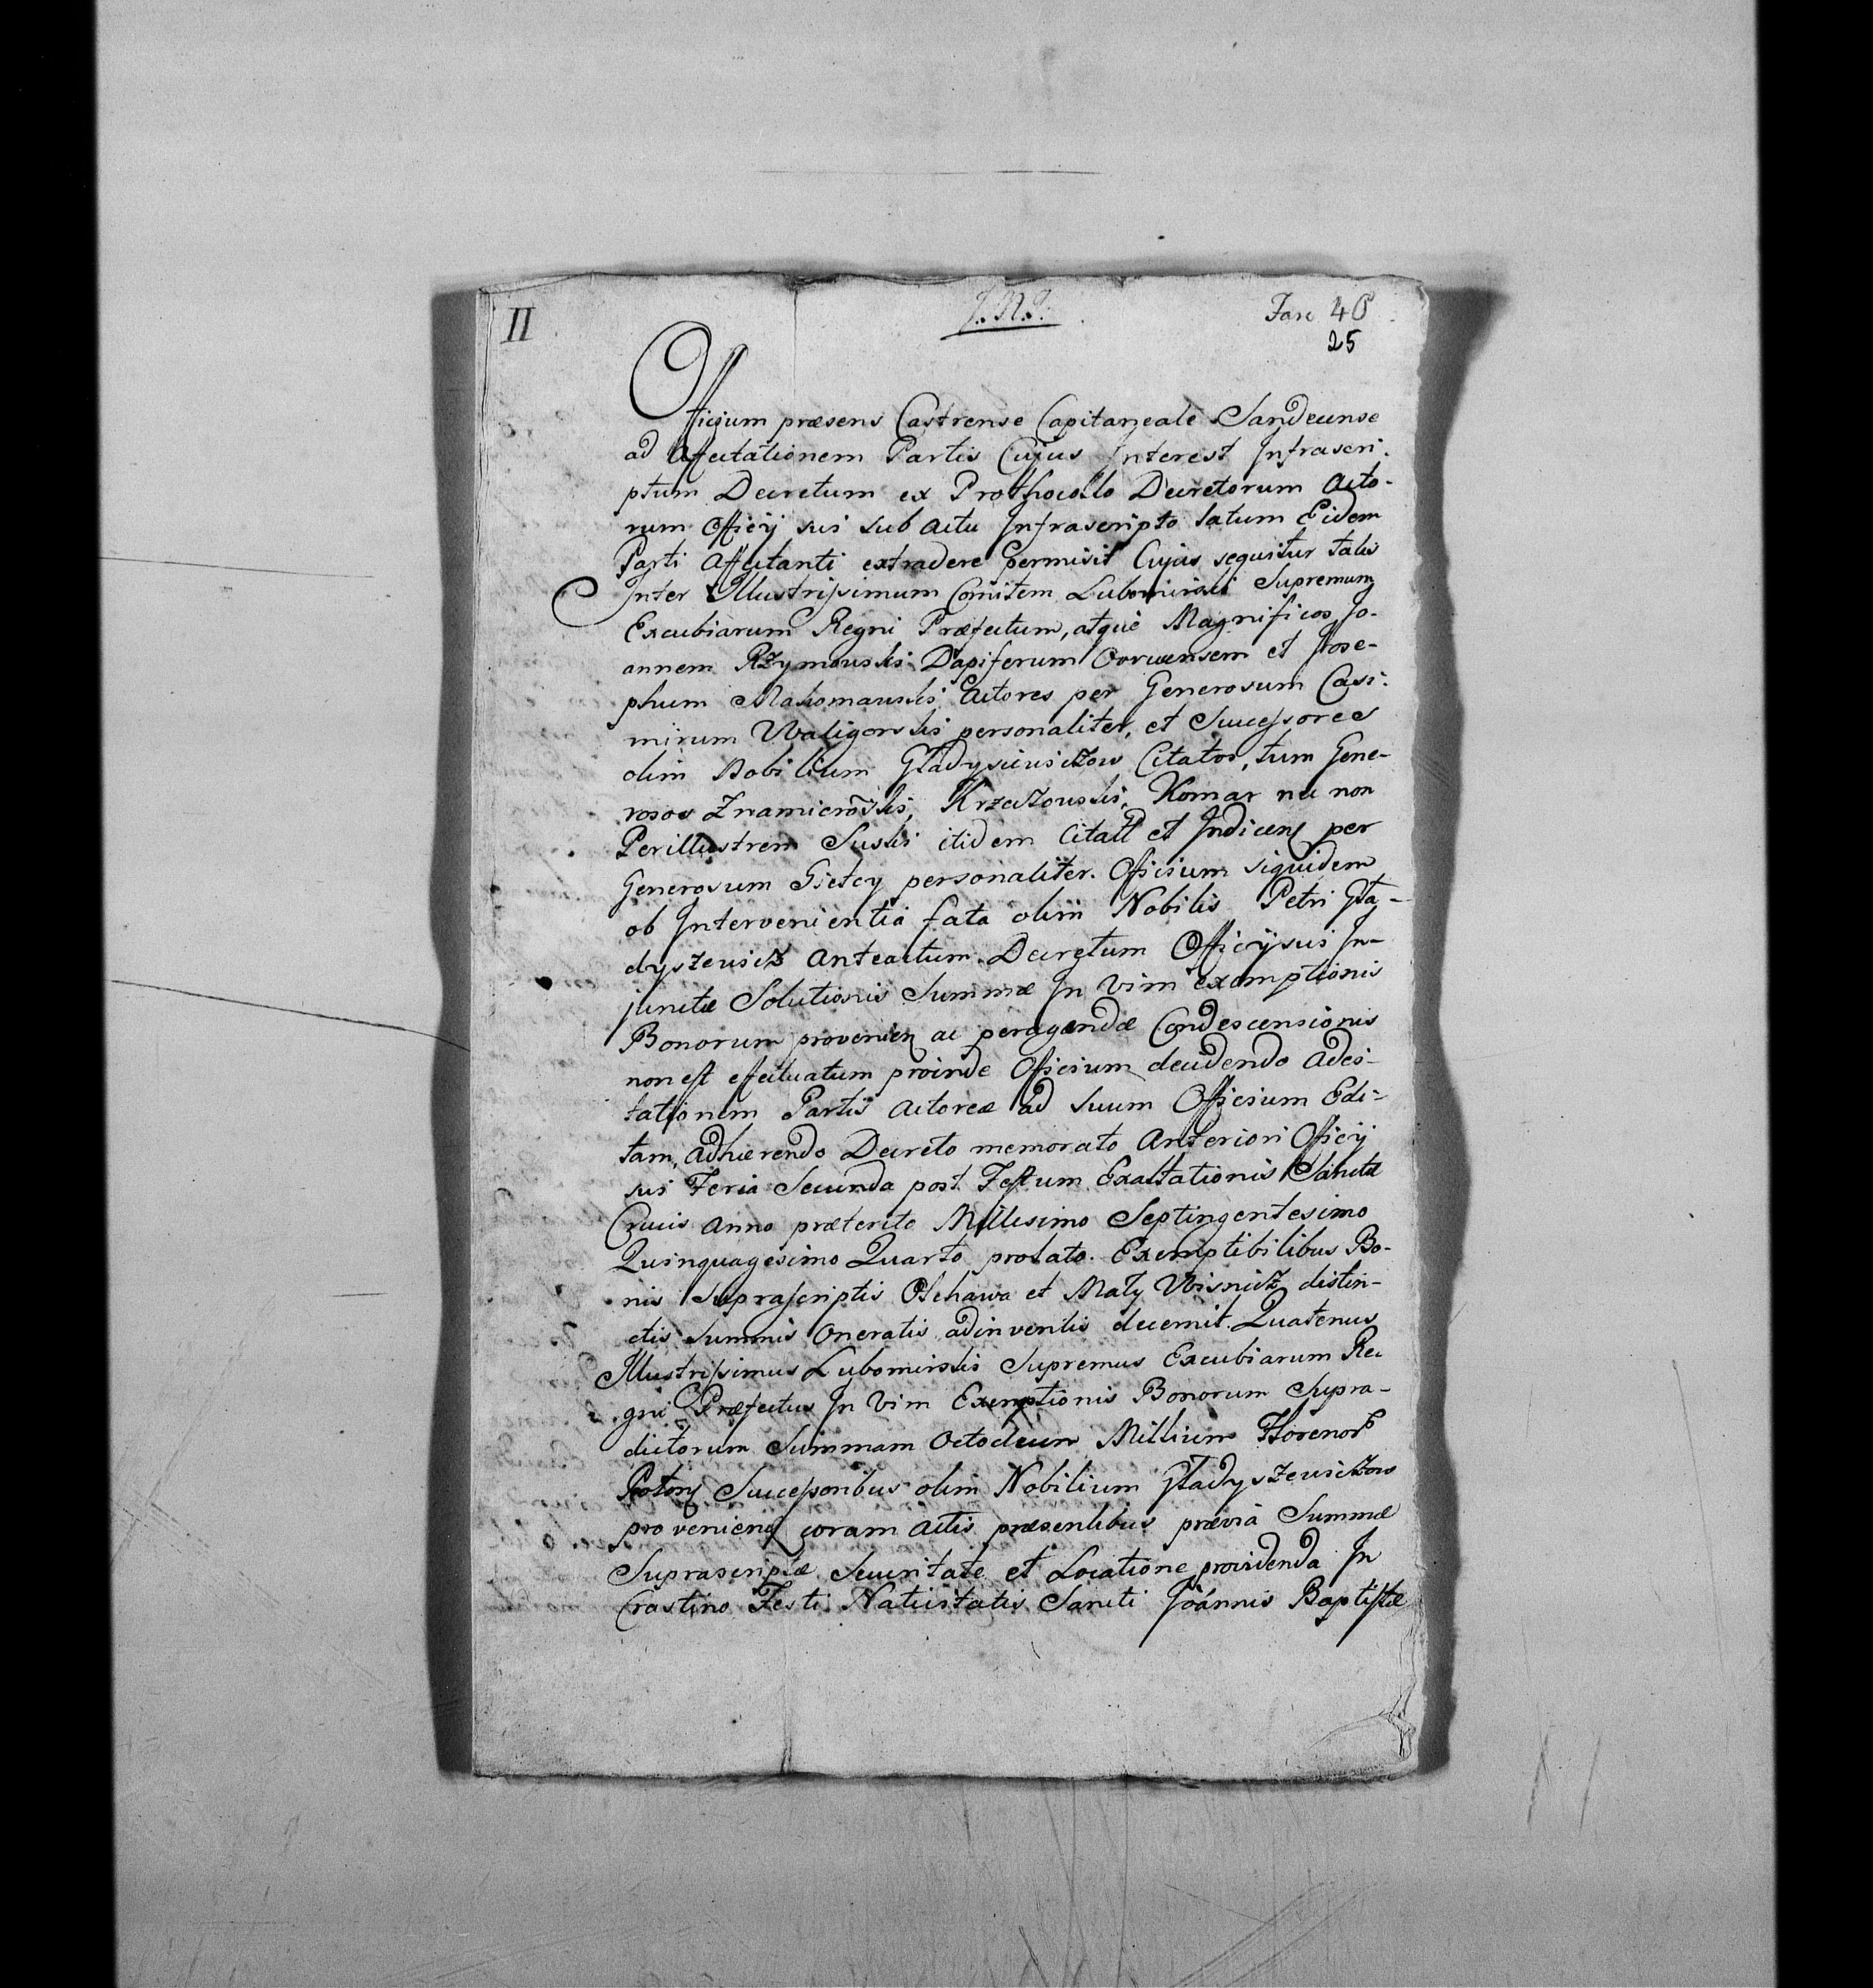 II
J.N.J.
Fasc 40
25
Officium præsens Castrense Capitaneale Sandecense
ad Affectationem Partis Cujus Interest Infrascri-
ptum Decretum ex Prothocollo Decretorum Acto-
rum Officij sui sub actu Infrascripto latum Eidem
Parti Affectanti extradere permisit Cujus sequitur talis
Inter Illustrissimum Comitem Lubomirski Supremum
Excubiarum Regni Præfectum, atque Magnificos Jo-
annem Rzymowski Dapiferum Owrucensem et Jose-
phum Makomaski Actores per Generosum Casi-
mirum Waligorski personaliter, et Successores
olim Nobilium Gładysiewiczow Citatos, tum Gene-
rosos Znamierowski, Krzeczowski, Komar nec non
Perillustrem Suski itidem Citatt et Indicen per
Generosum Gietcy personaliter. Officium siquidem
ob Intervenientia fata olim Nobilis Petri Gła-
dyszewicz anteactum Decretum Officij sui In-
junctæ Solutionis Summæ In vim exemptionis
Bonorum provenien ac peragendæ Condescensionis
non est effectuatum proinde Officium decidendo adci-
tationem Partis Actoreæ ad suum Officium Edi-
tam, adhærendo Decreto memorato Anteriori Officij
sui Feria Secunda post Festum Exaltationis Sanctæ
Crucis anno præterito Millesimo Septingentesimo
Quinquagesimo Quarto prolato. Exemptibilibus Bo-
nis Suprascriptis Olchawa et Mały Wisnicz distin-
ctis Summis Oneratis adinventis decernit. Quatenus
Illustrissimus Lubomirski Supremus Excubiarum Re-
gni Præfectus In Vim Exemptionis Bonorum Supra-
dictorum Summam Octodecim Millium Florenor
Polony Successoribus olim Nobilium Gładyszewiczow
provenien coram actis præsentibus prævia Summæ
Suprascriptæ Securitate et Locatione providenda In
Crastino Festi Nativitatis Sancti Joannis Baptistæ